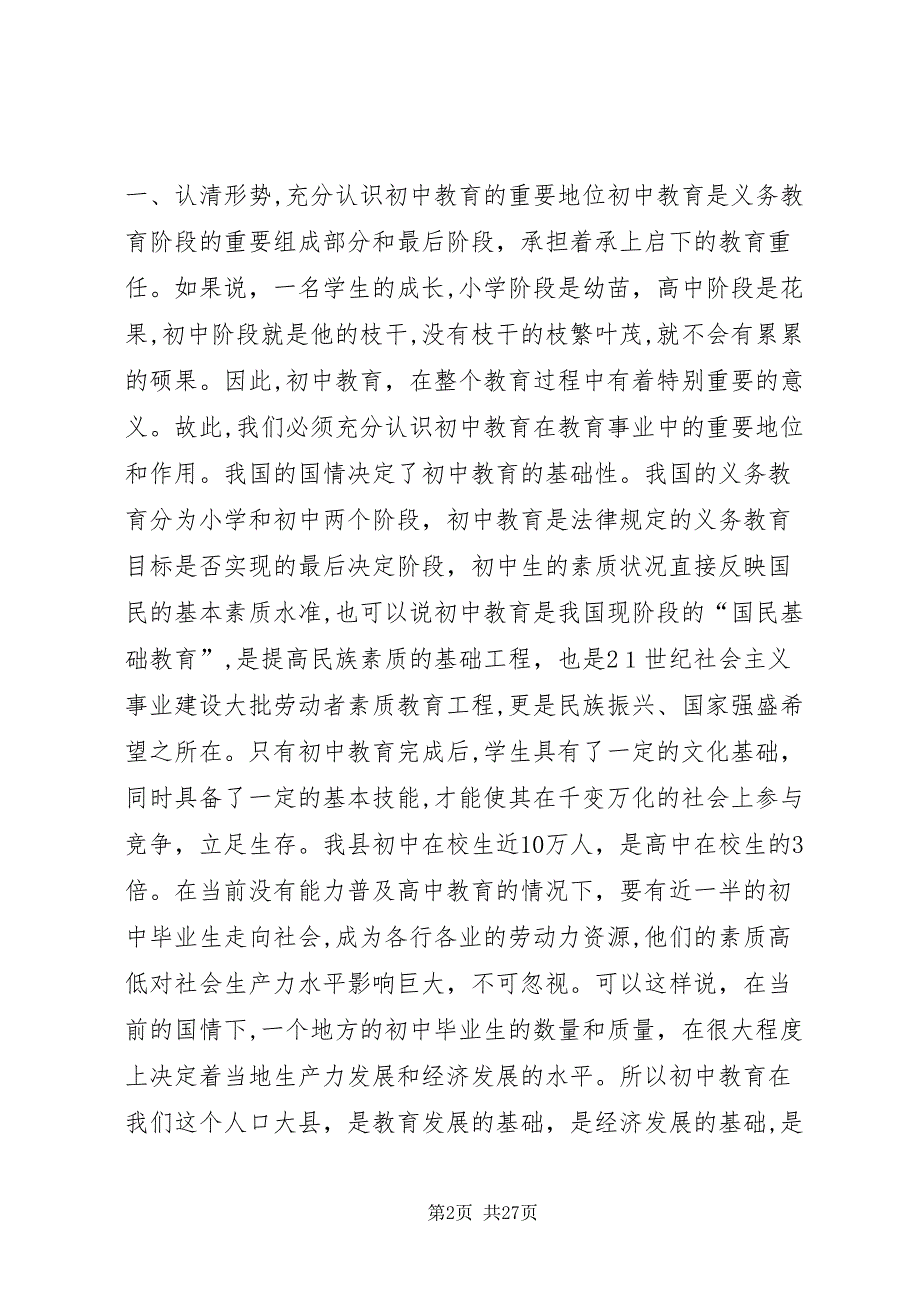 一、认清形势,充分认识初中教育的重要地位初中教育是义务教
育阶段的重要组成部分和最后阶段，承担着承上启下的教育重
任。如果说，一名学生的成长,小学阶段是幼苗，高中阶段是花
果,初中阶段就是他的枝干,没有枝干的枝繁叶茂,就不会有累累
的硕果。因此,初中教育，在整个教育过程中有着特别重要的意
义。故此,我们必须充分认识初中教育在教育事业中的重要地位
和作用。我国的国情决定了初中教育的基础性。我国的义务教
育分为小学和初中两个阶段，初中教育是法律规定的义务教育
目标是否实现的最后决定阶段，初中生的素质状况直接反映国
民的基本素质水准,也可以说初中教育是我国现阶段的“国民基
础教育”,是提高民族素质的基础工程，也是21世纪社会主义
事业建设大批劳动者素质教育工程,更是民族振兴、国家强盛希
望之所在。只有初中教育完成后,学生具有了一定的文化基础，
同时具备了一定的基本技能,才能使其在千变万化的社会上参与
竞争，立足生存。我县初中在校生近10万人，是高中在校生的3
倍。在当前没有能力普及高中教育的情况下，要有近一半的初
中毕业生走向社会,成为各行各业的劳动力资源,他们的素质高
低对社会生产力水平影响巨大，不可忽视。可以这样说，在当
前的国情下,一个地方的初中毕业生的数量和质量，在很大程度
上决定着当地生产力发展和经济发展的水平。所以初中教育在
我们这个人口大县，是教育发展的基础，是经济发展的基础,是
第2页 共27页